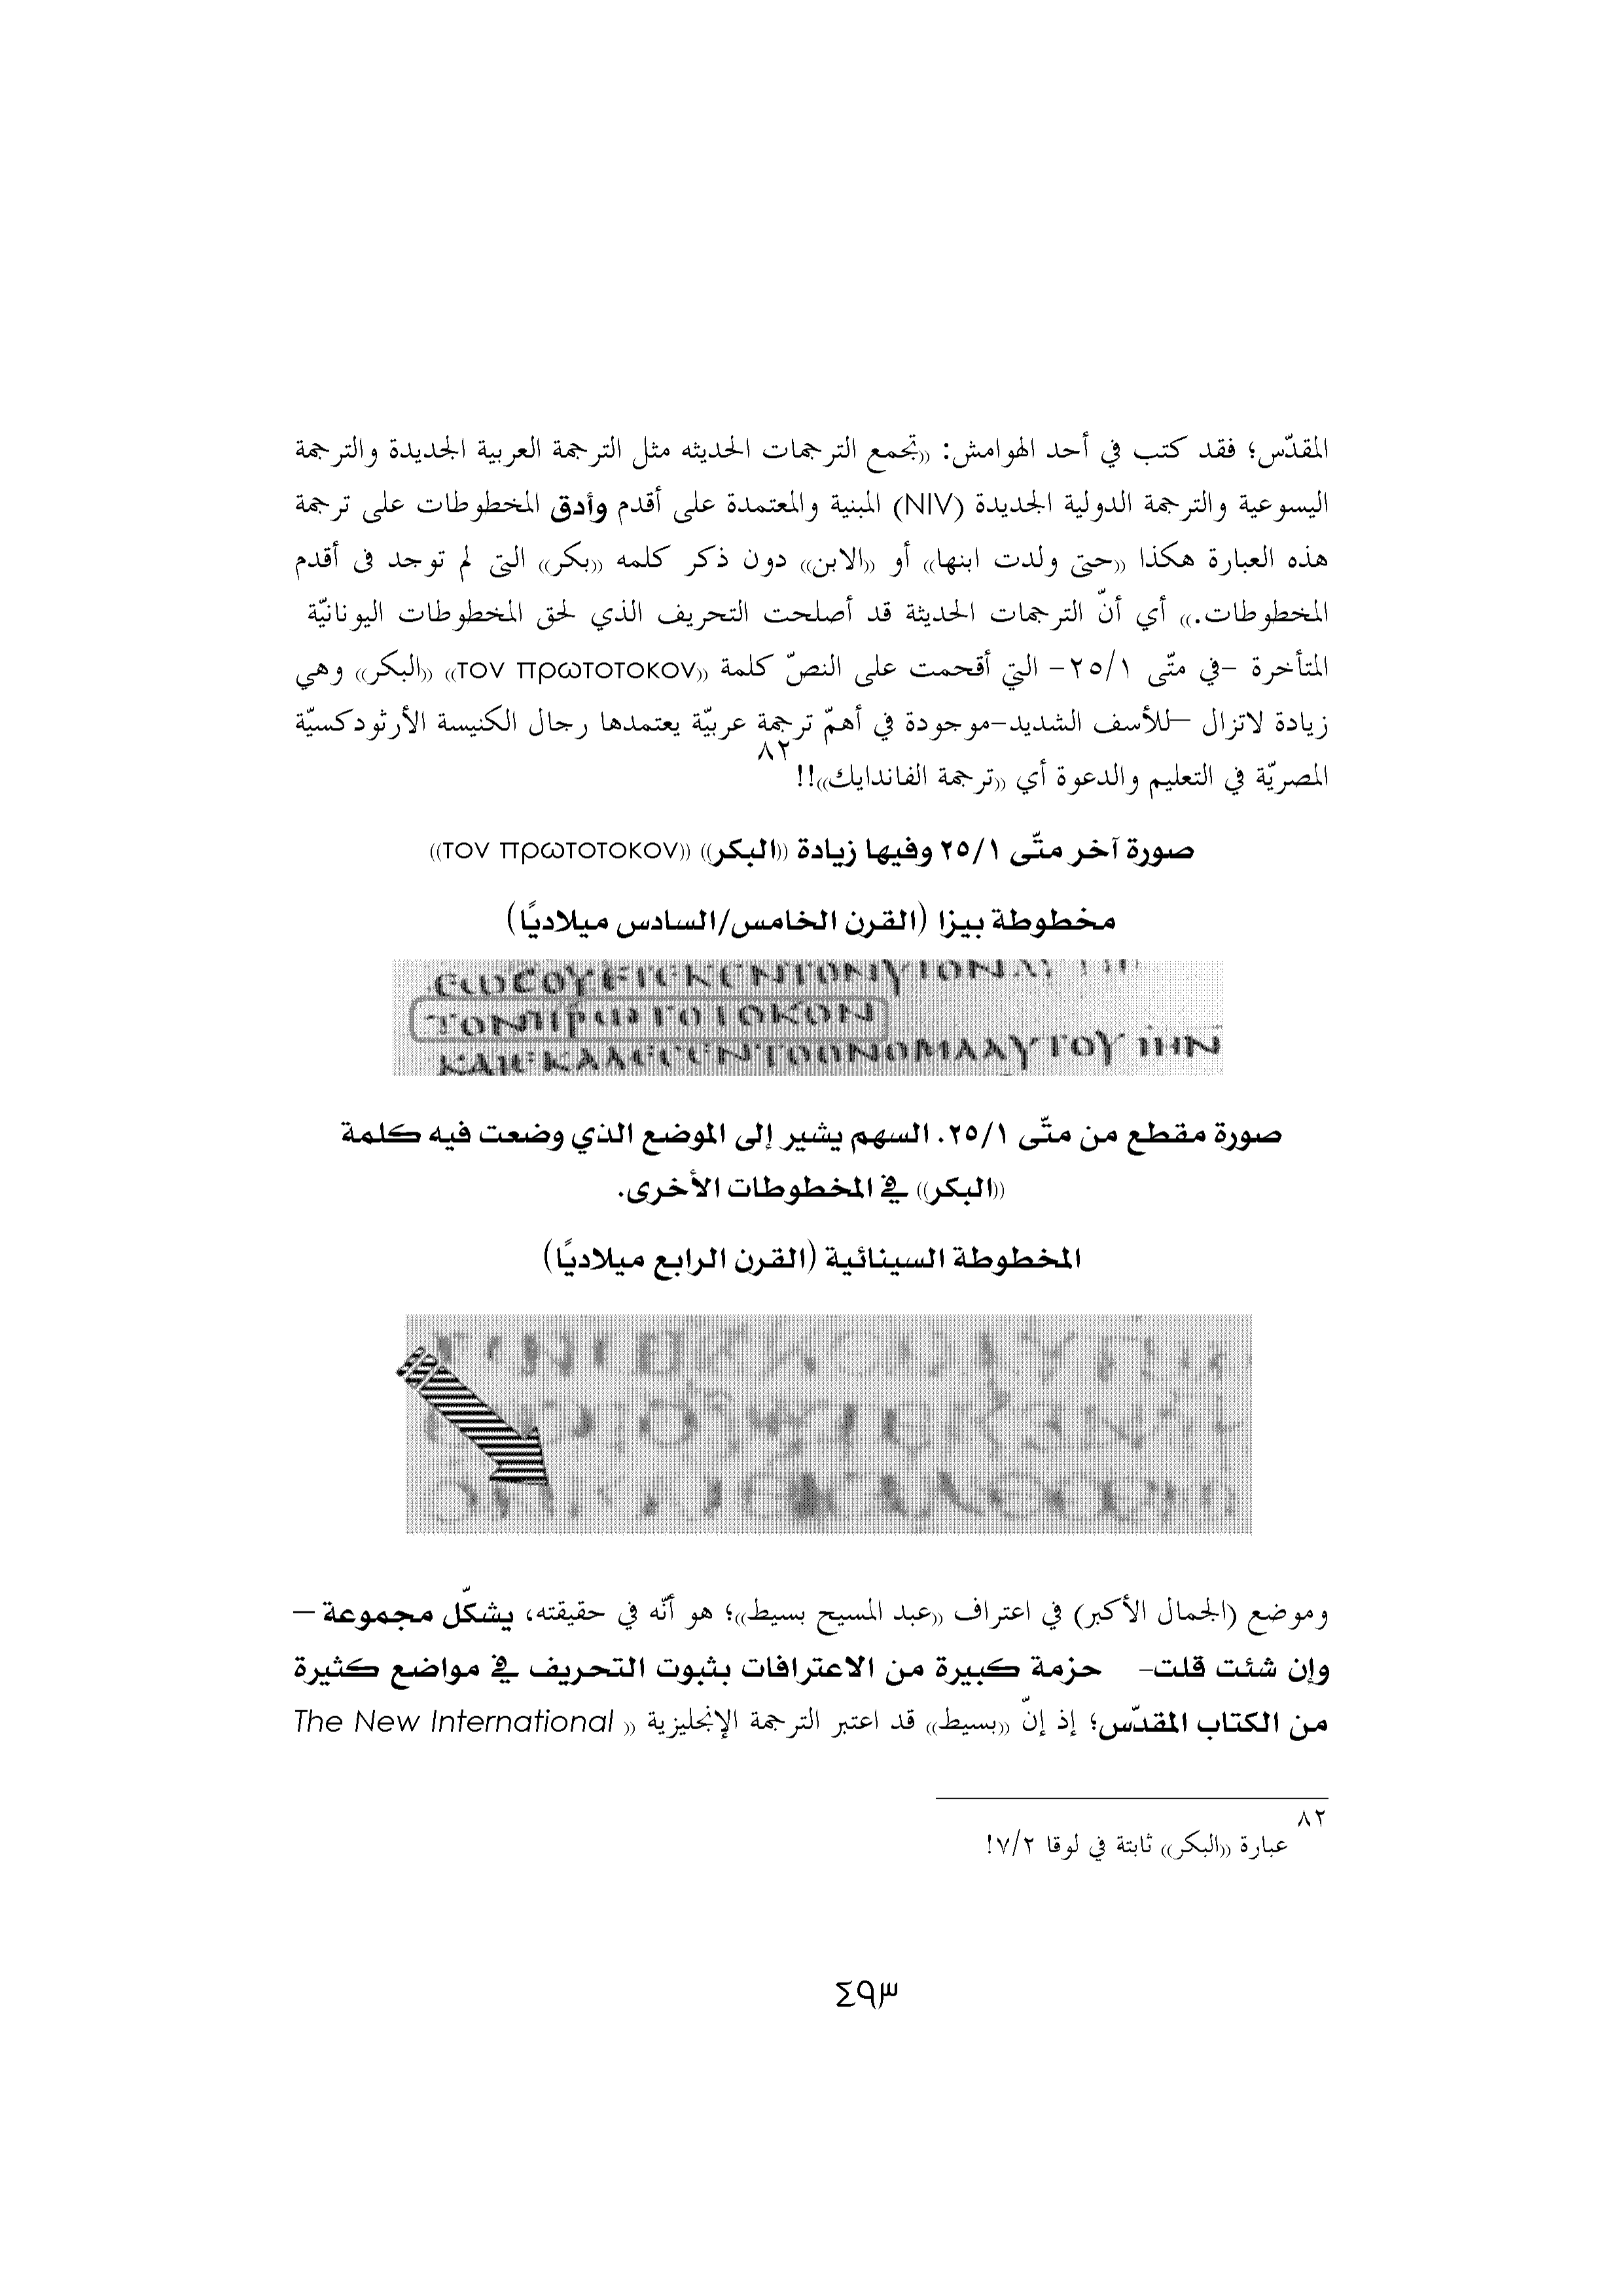 المقدّس؛ فقد كتب في أحد الهوامش: ((تجمع الترجمات الحديثه مثل الترجمة العربية الجديدة والترجمة
اليسوعية والترجمة الدولية الجديدة (NIV) المبنية والمعتمدة على أقدم وأدق المخطوطات على ترجمة
هذه العبارة هكذا ((حتى ولدت ابنها)) أو ((الابن)) دون ذكر كلمه ((بكر)) التى لم توجد فى أقدم
المخطوطات.)) أي أنّ الترجمات الحديثة قد أصلحت التحريف الذي لحق المخطوطات اليونانيّة
المتأخرة -في متّى ٢٥/١- التي أقحمت على النصّ كلمة ((τον πρωτοτοκον)) ((البكر)) وهي
زيادة لاتزال –للأسف الشديد-موجودة في أهمّ ترجمة عربيّة يعتمدها رجال الكنيسة الأرثودكسيّة
المصريّة في التعليم والدعوة أي ((ترجمة الفاندايك))!! ٨٢
صورة آخر متّى ٢٥/١ وفيها زيادة ((البكر)) ((τον πρωτοτοκον))
مخطوطة بيزا (القرن الخامس/السادس ميلاديًا)
ΕΩСΟΥΕΤΕΚΕΝΤΟΝΥΙΟΝΑΥΤΗ
ΤΟΝΠΡΩΤΟΤΟΚΟΝ
ΚΑΙΕΚΑΛΕСΕΝΤΟΟΝΟΜΑΑΥΤΟΥΙΗΝ
صورة مقطع من متّى ٢٥/١. السهم يشير إلى الموضع الذي وضعت فيه كلمة
((البكر)) في المخطوطات الأخرى.
المخطوطة السينائية (القرن الرابع ميلاديًا)
وموضع (الجمال الأكبر) في اعتراف ((عبد المسيح بسيط))؛ هو أنّه في حقيقته، يشكّل مجموعة –
وإن شئت قلت- حزمة كبيرة من الاعترافات بثبوت التحريف في مواضع كثيرة
من الكتاب المقدّس؛ إذ إنّ ((بسيط)) قد اعتبر الترجمة الإنجليزية (( The New International
٨٢ عبارة ((البكر)) ثابتة في لوقا ٧/٢!
٤٩٣